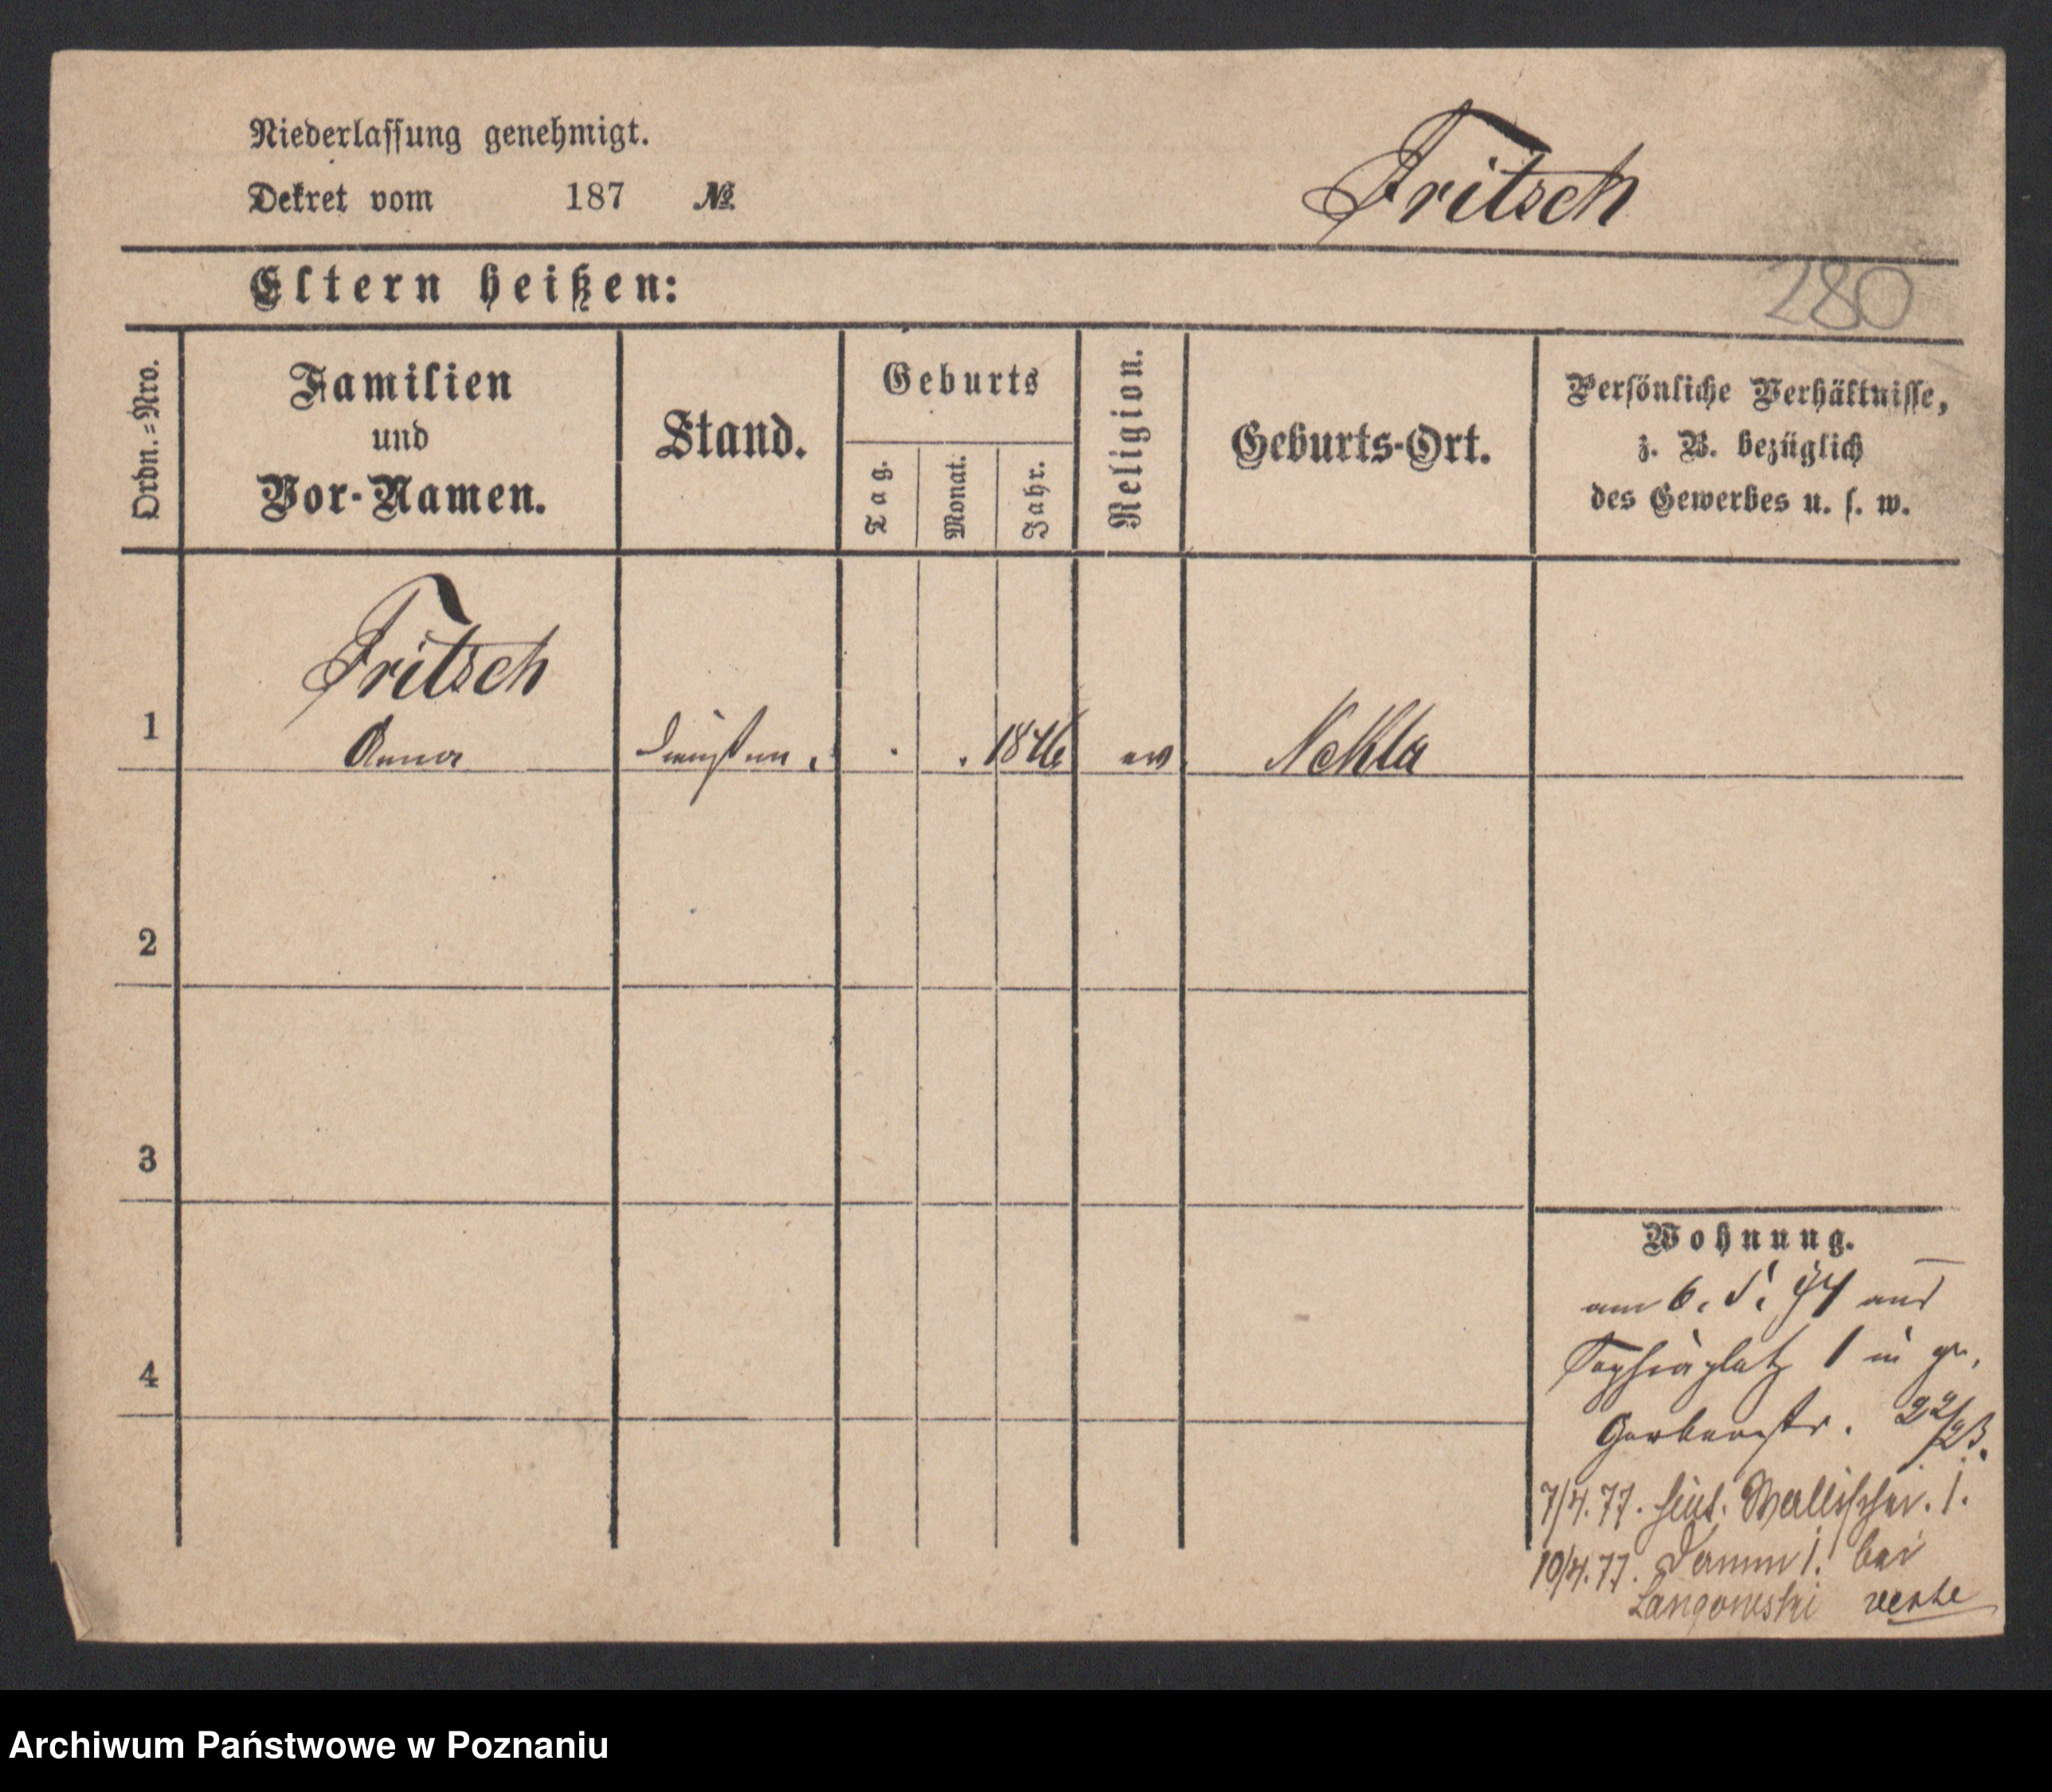 Niederlassung genehmigt.
Dekret vom 187 №
Fritsch
Eltern heißen:
280
Ordn.=Nro.
Familien
und
Vor-Namen.
Stand.
Geburts
Tag.
Monat.
Jahr.
Religion.
Geburts-Ort.
Persönliche Verhältnisse,
z. B. bezüglich
des Gewerbes u. s. w.
1
Fritsch
Anna
1846
ev
Nekla
2
3
4
Wohnung.
am 6. 5. 74 aus
Sapiehaplatz 1 in gr.
Gerberstr.
7/4.77. Wallischei. 1.
10/4.77. Damm 1. bei
Langowski
Archiwum Państwowe w Poznaniu